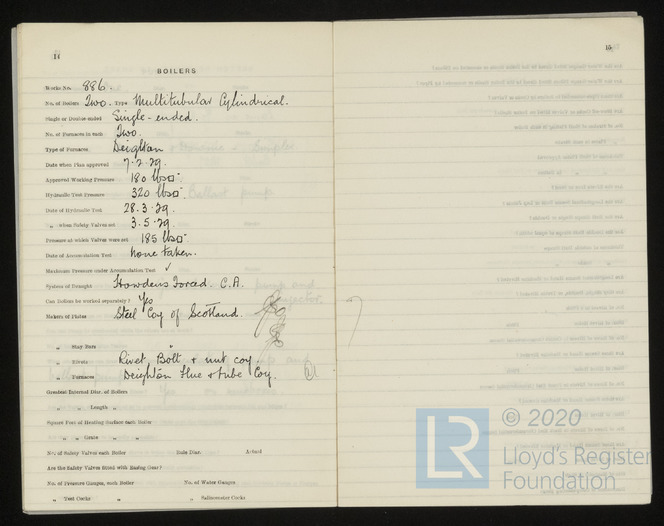 14
BOILERS
Works No. 886.
No. of Boilers Two. Type Multitubular Cylindrical.
Single or Double-ended Single-ended.
No. of Furnaces in each Two.
Type of Furnaces Deighton
Date when Plan approved 7.2.29.
Approved Working Pressure 180 lbs
Hydraulic Test Pressure 320 lbs
Date of Hydraulic Test 28.3.29.
„ when Safety Valves set 3.5.29.
Pressure at which Valves were set 185 lbs
Date of Accumulation Test None taken.
Maximum Pressure under Accumulation Test
System of Draught Howdens Forced. C.A.
Can Boilers be worked separately? Yes
Makers of Plates Steel Coy of Scotland.
„ Stay Bars "
„ Rivets Rivet, Bolt & nut coy.
„ Furnaces Deighton Flue & tube Coy.
Greatest Internal Diar. of Boilers
„ „ Length „
Square Feet of Heating Surface each Boiler
„ „ Grate „ „
No. of Safety Valves each Boiler Rule Diar. Actual
Are the Safety Valves fitted with Easing Gear?
No. of Pressure Gauges, each Boiler No. of Water Gauges
„ Test Cocks „ „ Salinometer Cocks
15
LR
© 2020
Lloyd's Register
Foundation